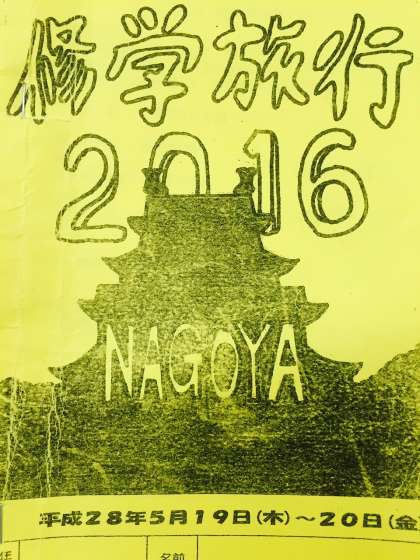 修学旅行
2016
NAGOYA
平成28年5月19日(木)～20日(金)
任
名前